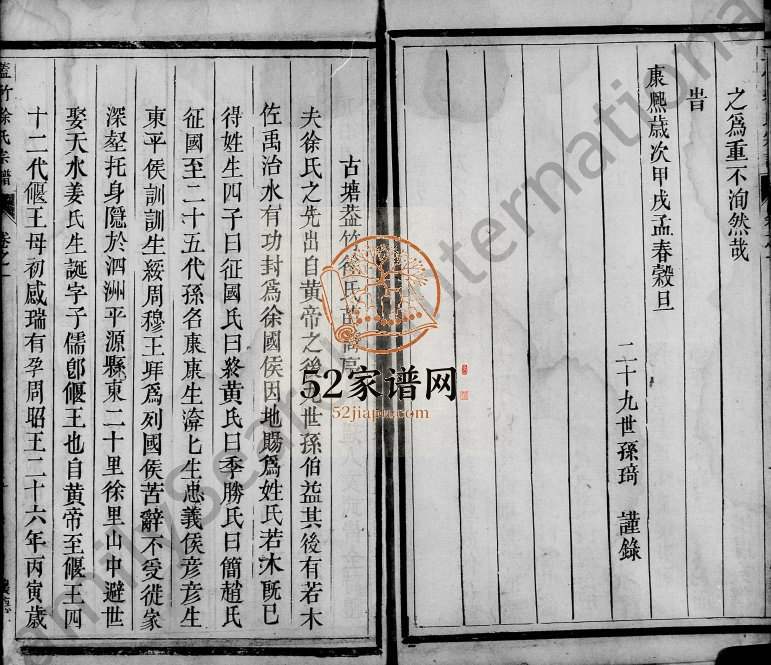 之爲重不洵然哉
旹
康熙歲次甲戌孟春穀旦
二十九世孫琦 謹錄
古塘葢竹徐氏
夫徐氏之先出自黃帝之後九世孫伯益其後有若木
佐禹治水有功封爲徐國侯因地賜爲姓氏若沐旣已
得姓生四子曰征國氏曰終黃氏曰季勝氏曰簡趙氏
征國至二十五代孫名康康生渰匕生忠義侯彦彦生
東平侯訓訓生綏周穆王拜爲列國侯苦辭不受徙家
深壑托身隱於泗洲平源縣東二十里徐里山中避世
娶天水姜氏生誕字子儒卽偃王也自黃帝至偃王四
十二代偃王母初感瑞有孕周昭王二十六年丙寅歲
葢竹徐氏宗譜 卷之一
52家谱网
52jiapu.com
FamilySearch International